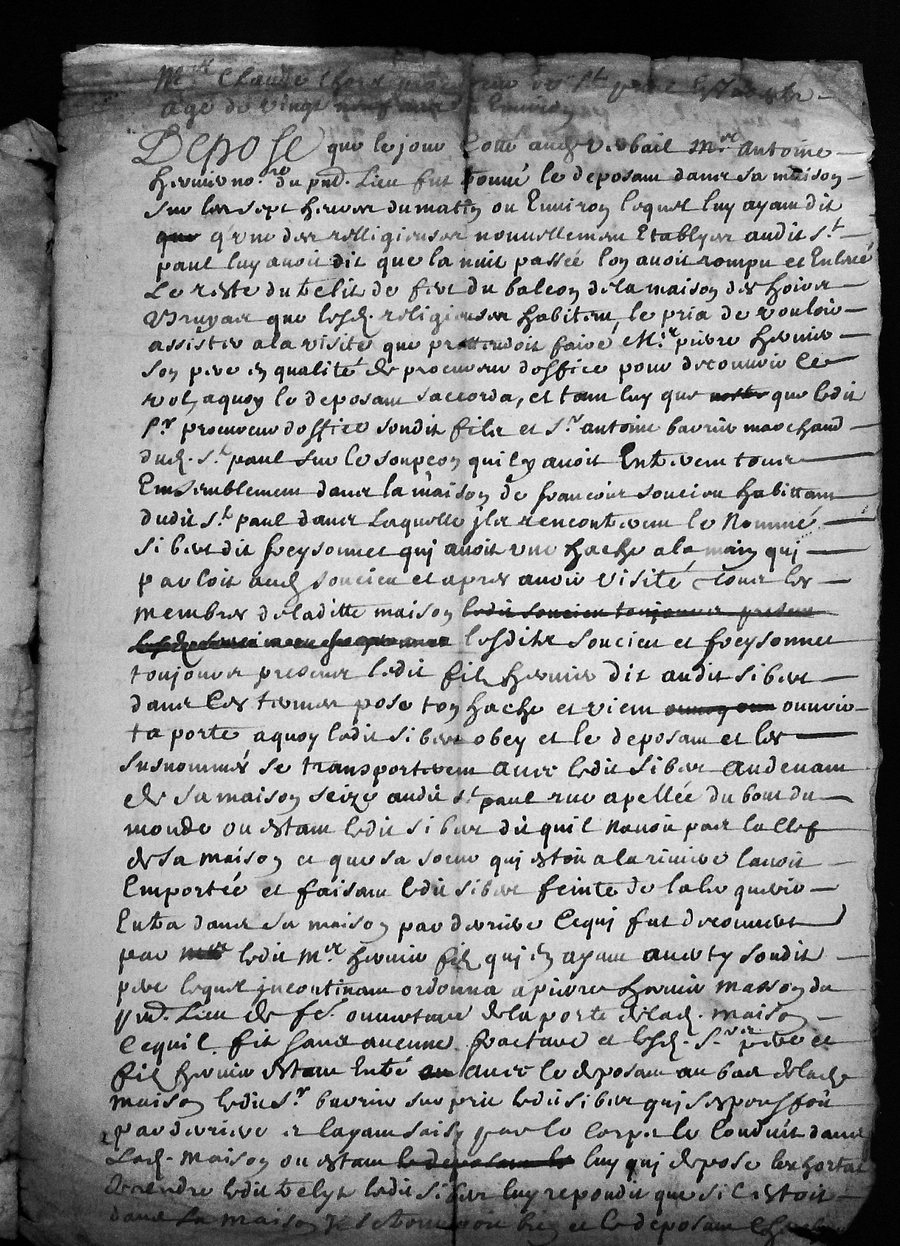 Mr Claude
age de vingt neuf ans Environ
Depose que le jour anch verbail Mre Antoine
hermie nore du pnt. Lieu fut trouvé le deposant dans sa maison
sur les sept heures du matin ou Environ lequel luy ayant dit
que qune des relligieuses nouvellement Etablyes audit St
paul luy avoit dit que la nuit passée lon avoit rompu et Enlevé
Le reste du telit de fer du balcon dela maison des hoirs
Bruyas que lesd. religieuses habitent, le pria de vouloir
assister a la visite que pretendoit faire Mre pierre hermie
son pere en qualité de procureur doffice pour decouvrir ce
vol, aquoy le deposant saccorda, et tant luy que que ledit
Sr procureur doffice sondit fils et Sr antoine bavrie marchand
dud. St paul sur le soupçon quilz avoit Entrerent tous
Ensemblement dans la maison de francois soucieu habittant
dudit St paul dans Laquelle jls rencontrerent le Nommé
sibert dit freysonnet qui avoit une hache a la main qui
parloit aud soucieu et apres avoir visité tous les
membres deladitte maison ledit soucieu toujours present
lesdits soucieu et freysonnet
toujours presens ledit fils hermie dit audit sibert
dans ces termes pose ton hache et viens ouvrir
ta porte aquoy ledit sibert obey et le deposant et les
susnommés se transporterent avec ledit sibert audevant
de sa maison seize audit St paul rue apellée du bout du
monde ou estant ledit sibert dit quil navoit pas la clef
de sa maison et que sa soeur qui estoit a la riviere lavoit
Emportée et faisant ledit sibert feinte de laller querir
Entra dans sa maison par derriere ce qui fut decouvert
par ledit Mre hermie fils qui en ayant averty sondit
pere lequel jncontinant ordonna a pierre hermie masson du
pnd. Lieu de fe. ouverture de la porte delad. maison
ce quil fit sans aucune fracture et lesd. Srs pere et
fils hermie estant Entré avec le deposant au bas delade
maison ledit Sr bavrie surprit ledit sibert qui
par derriere et layant saisy par le corps le conduit dans
Lad. maison ou estant le deposant luy qui depose lexhorta
de rendre ledit telit ledit sibert luy repondit que sil estoit
dans sa maison et le deposant